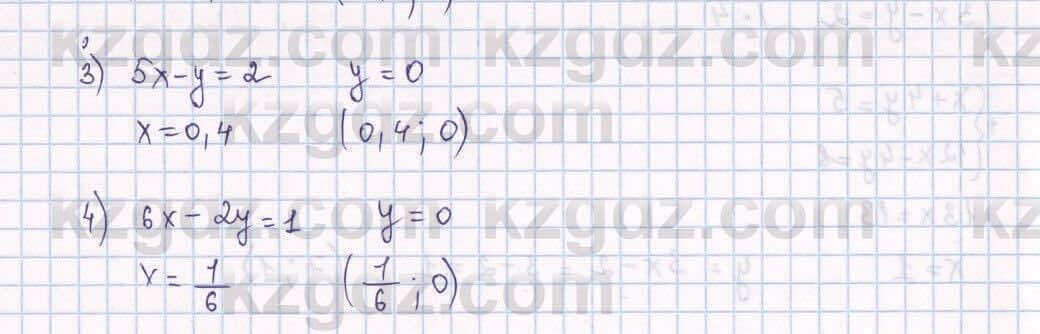 kzgdz.com kzgdz.com kz
3) 5x-y=2 y=0
x=0,4 (0,4;0)
kzgdz.com
4) 6x-2y=1 y=0
kzgdz.com kzgdz.com kz
x=1/6 (1/6;0)
kzgdz.com